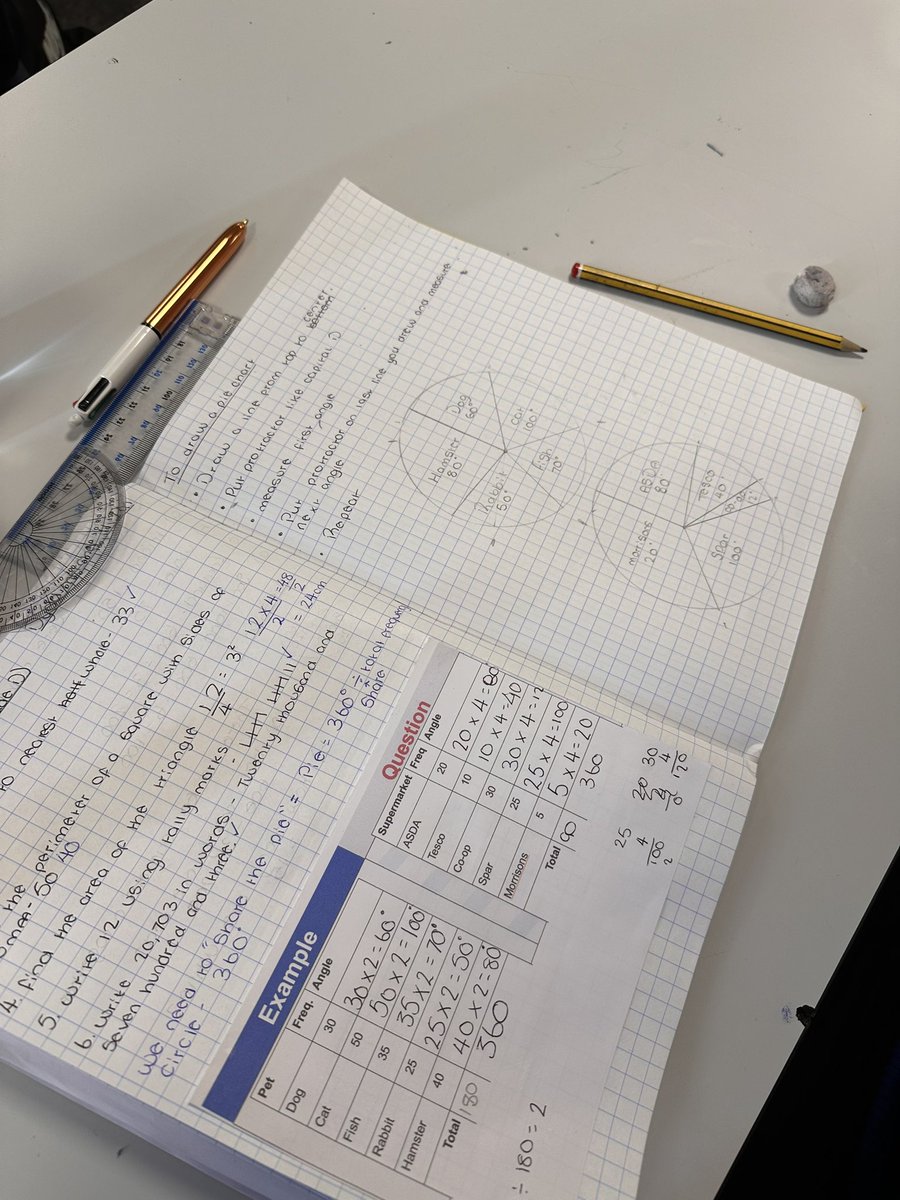 to nearest half whole - 33 ✓
the perimeter of a square with sides of
50 40
4. find the area of the triangle 12/4 = 3²
12 x 4 = 48
2 2
= 24cm
5. write 12 using tally marks -
6. Write 20,703 in words - Twenty thousand and
seven hundred and three. ✓
We need to "Share the pie" = Pie = 360° ÷ total frequency
Circle - 360°
Share
Example
Pet Freq. Angle
Dog 30 30 x 2 = 60°
Cat 50 50 x 2 = 100°
Fish 35 35 x 2 = 70°
Rabbit 25 25 x 2 = 50°
Hamster 40 40 x 2 = 80°
Total 180 360
÷ 180 = 2
Question
Supermarket Freq Angle
ASDA 20 20 x 4 = 80
Tesco 10 10 x 4 = 40
Co-op 30 30 x 4 = 12
Spar 25 25 x 4 = 100
Morrisons 5 5 x 4 = 20
Total 90 360
25
4
100
2
30
4
120
To draw a pie chart
• Draw a line from top to center.
bottom
• Put protractor like capital D
• measure first angle
• Put protractor on last line you drew and measure
next angle
• Repeat
Dog
60°
Cat
100°
Fish
70°
Rabbit
50°
Hamster
80°
ASDA
80
Tesco
40
Spar
100°
morrisons
20°